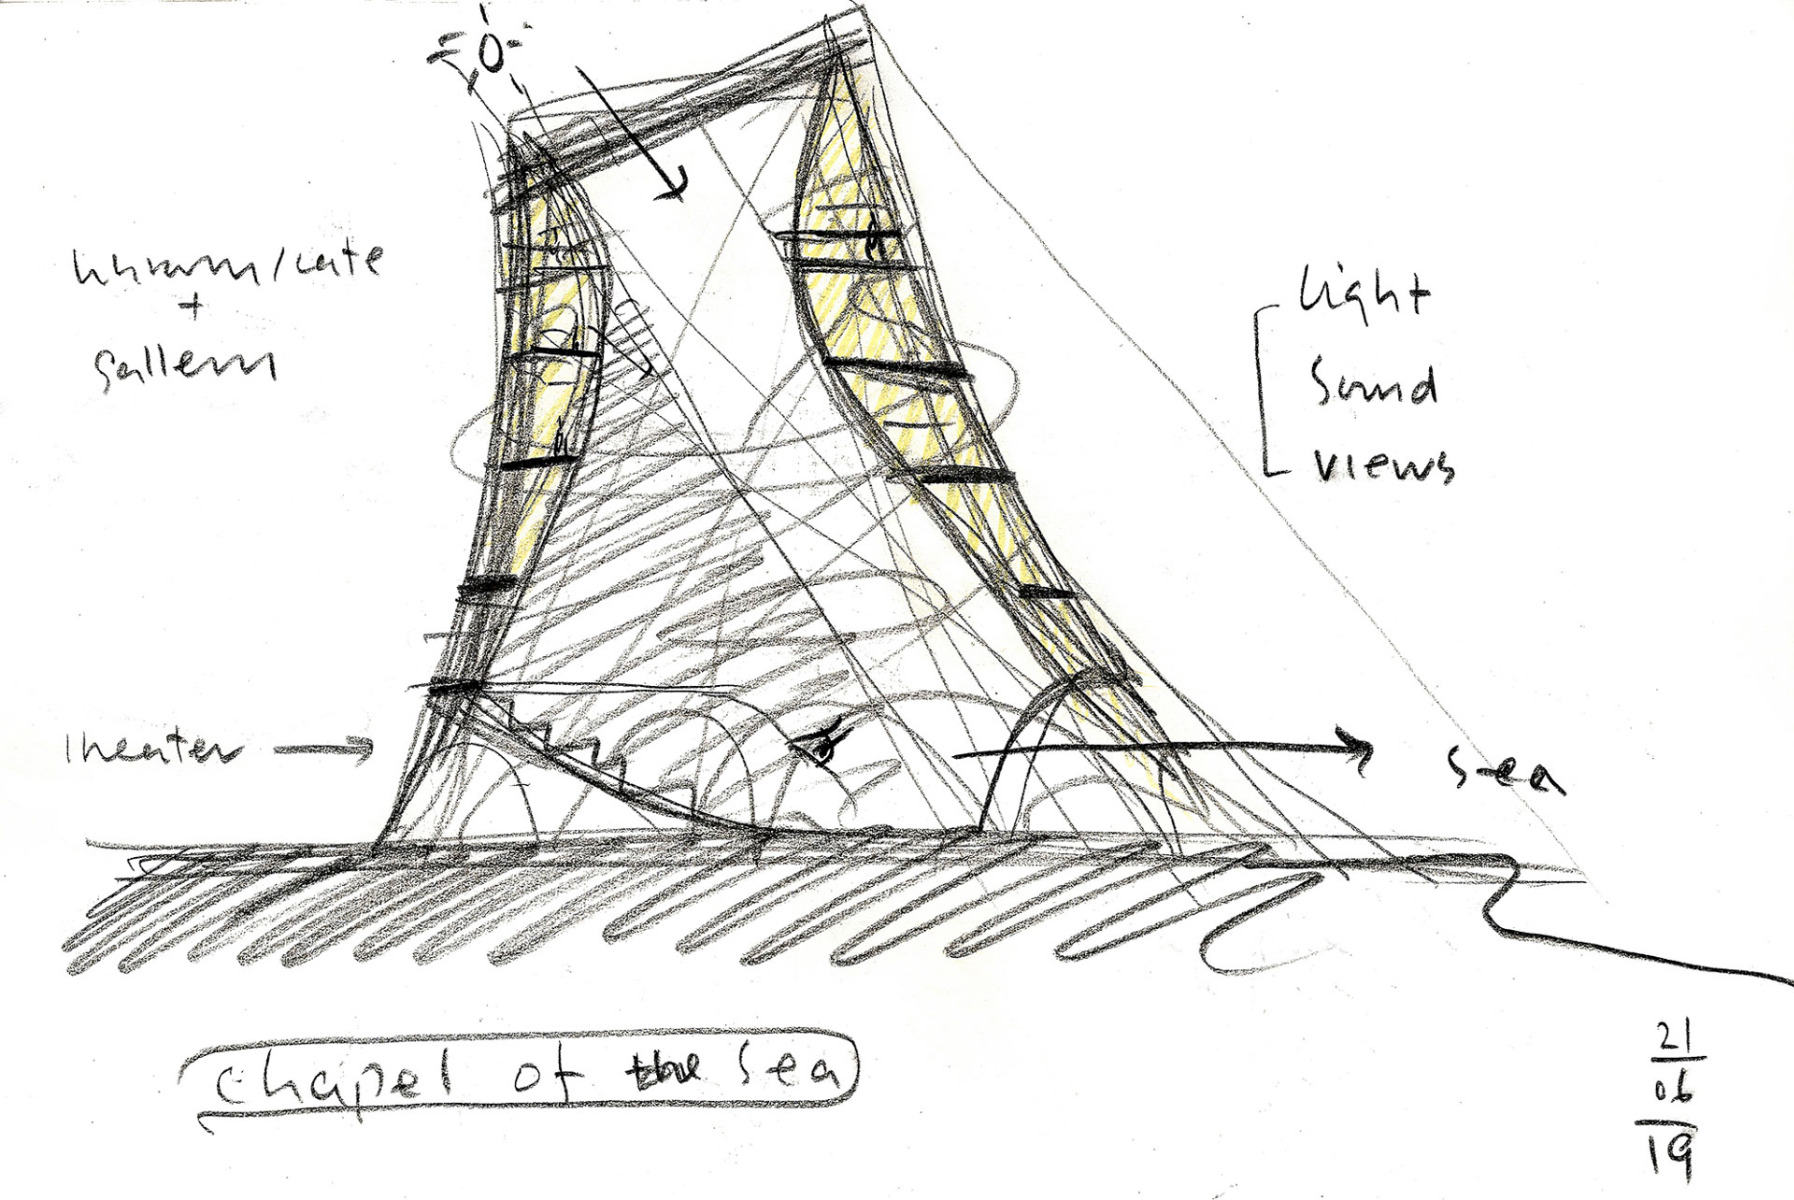 library/cafe
+
gallery
Light
Sound
views
theater
sea
chapel of the sea
21
06
19